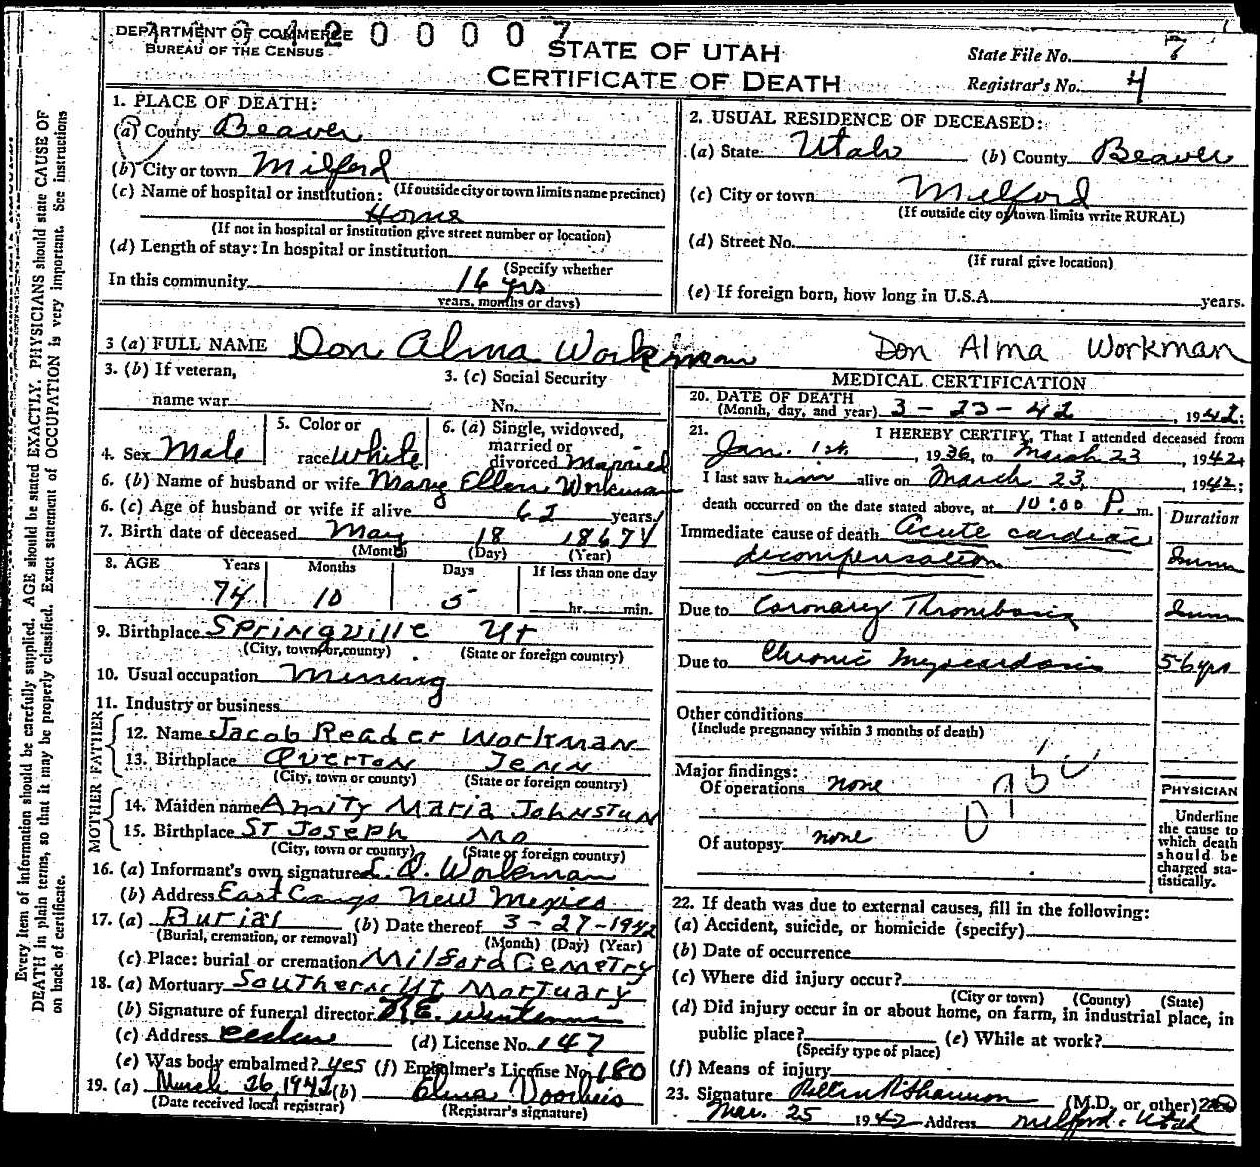 Every item of information should be carefully supplied. AGE should be stated EXACTLY. PHYSICIANS should state CAUSE OF
DEATH in plain terms, so that it may be properly classified. Exact statement of OCCUPATION is very important. See instructions
on back of certificate.
DEPARTMENT OF COMMERCE
BUREAU OF THE CENSUS
2 0 0 0 0 7
STATE OF UTAH
CERTIFICATE OF DEATH
State File No. 7
Registrar's No. 4
1. PLACE OF DEATH:
(a) County Beaver
(b) City or town Milford
(If outside city or town limits name precinct)
(c) Name of hospital or institution:
Home
(If not in hospital or institution give street number or location)
(d) Length of stay: In hospital or institution
(Specify whether
In this community 16 yrs
years, months or days)
2. USUAL RESIDENCE OF DECEASED:
(a) State Utah (b) County Beaver
(c) City or town Milford
(If outside city or town limits write RURAL)
(d) Street No.
(If rural give location)
(e) If foreign born, how long in U.S.A. years.
3 (a) FULL NAME Don Alma Workman Don Alma Workman
3. (b) If veteran,
name war
3. (c) Social Security
No.
4. Sex Male
5. Color or
race White
6. (a) Single, widowed,
married or
divorced Married
6. (b) Name of husband or wife Mary Ellen Workman
6. (c) Age of husband or wife if alive years.
7. Birth date of deceased May 18 1867
(Month) (Day) (Year)
8. AGE Years Months Days If less than one day
74 10 5 hr. min.
9. Birthplace Springville Ut
(City, town or county) (State or foreign country)
10. Usual occupation Mining
11. Industry or business
FATHER
12. Name Jacob Reader Workman
13. Birthplace Overton Tenn
(City, town or county) (State or foreign country)
MOTHER
14. Maiden name Amity Maria Johnstun
15. Birthplace St Joseph Mo
(City, town or county) (State or foreign country)
16. (a) Informant's own signature Workman
(b) Address East New Mexico
17. (a) Burial (b) Date thereof 3-27-1942
(Burial, cremation, or removal) (Month) (Day) (Year)
(c) Place: burial or cremation Milford Cemetry
18. (a) Mortuary Southern Ut Mortuary
(b) Signature of funeral director
(c) Address (d) License No. 147
(e) Was body embalmed? yes (f) Embalmer's License No. 180
19. (a) March 26 1942 (b) Elma Voorheis
(Date received local registrar) (Registrar's signature)
MEDICAL CERTIFICATION
20. DATE OF DEATH
(Month, day, and year) 3-23-42, 1942;
21. I HEREBY CERTIFY, That I attended deceased from
Jan. 1st, 1936, to March 23, 1942;
I last saw him alive on March 23, 1942;
death occurred on the date stated above, at 10:00 P. m.
Duration
Immediate cause of death Acute cardiac
decompensation
Due to Coronary Thrombosis
Due to Chronic 5-6 yrs
Other conditions
(Include pregnancy within 3 months of death)
Major findings:
Of operations none
Of autopsy none
PHYSICIAN
Underline
the cause to
which death
should be
charged sta-
tistically.
22. If death was due to external causes, fill in the following:
(a) Accident, suicide, or homicide (specify)
(b) Date of occurrence
(c) Where did injury occur?
(City or town) (County) (State)
(d) Did injury occur in or about home, on farm, in industrial place, in
public place? (e) While at work?
(Specify type of place)
(f) Means of injury
23. Signature (M.D. or other)
Mar. 25 1942 Address Milford, Utah